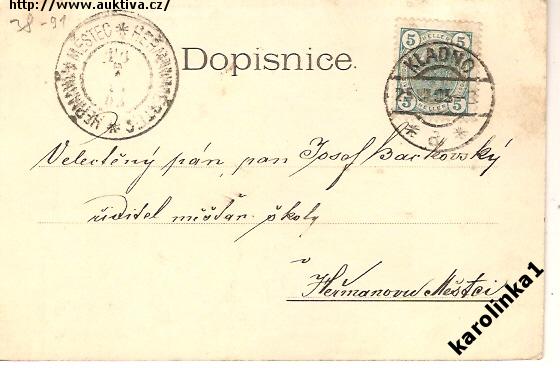 http://www.auktiva.cz/
28-91
HEŘMANŮV MĚSTEC
Dopisnice
5 HELLER 5
KLADNO
5 HELLER 5
Velectěný pán, pan Josef Backovský
řiditel měšťan. školy
v
Heřmanovu Městci
karolinka1